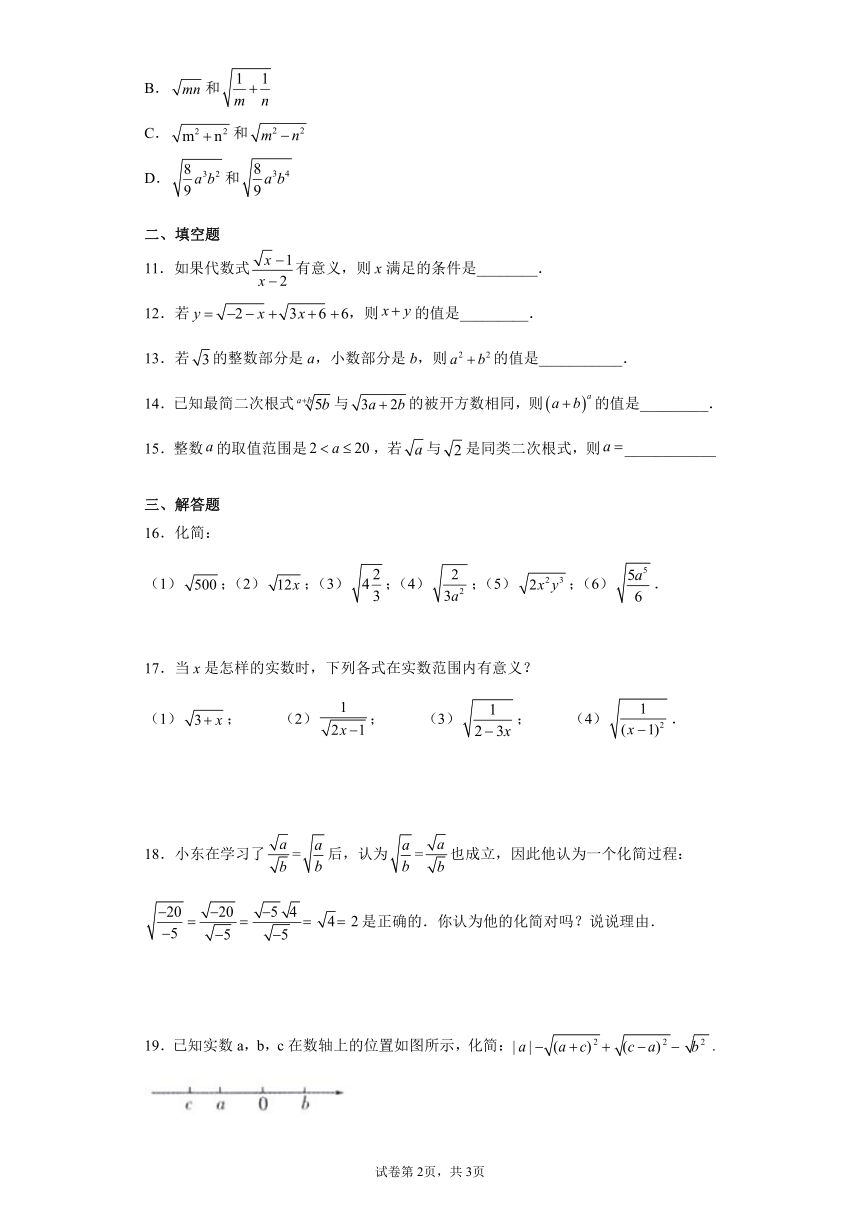 B．$\sqrt{mn}$ 和 $\sqrt{\frac{1}{m}+\frac{1}{n}}$
C．$\sqrt{m^2+n^2}$ 和 $\sqrt{m^2-n^2}$
D．$\sqrt{\frac{8}{9}a^3b^2}$ 和 $\sqrt{\frac{8}{9}a^3b^4}$
二、填空题
11．如果代数式 $\frac{\sqrt{x}-1}{x-2}$ 有意义，则 x 满足的条件是________．
12．若 $y=\sqrt{-2-x}+\sqrt{3x+6}+6$，则 $x+y$ 的值是_________．
13．若 $\sqrt{3}$ 的整数部分是 a，小数部分是 b，则 $a^2+b^2$ 的值是___________．
14．已知最简二次根式 $\sqrt[a+b]{5b}$ 与 $\sqrt{3a+2b}$ 的被开方数相同，则 $(a+b)^a$ 的值是_________．
15．整数 $a$ 的取值范围是 $2<a\le 20$，若 $\sqrt{a}$ 与 $\sqrt{2}$ 是同类二次根式，则 $a=$____________
三、解答题
16．化简：
（1）$\sqrt{500}$；（2）$\sqrt{12x}$；（3）$\sqrt{4\frac{2}{3}}$；（4）$\sqrt{\frac{2}{3a^2}}$；（5）$\sqrt{2x^2y^3}$；（6）$\sqrt{\frac{5a^5}{6}}$．
17．当 x 是怎样的实数时，下列各式在实数范围内有意义？
（1）$\sqrt{3+x}$； （2）$\frac{1}{\sqrt{2x-1}}$； （3）$\sqrt{\frac{1}{2-3x}}$； （4）$\sqrt{\frac{1}{(x-1)^2}}$．
18．小东在学习了 $\frac{\sqrt{a}}{\sqrt{b}}=\sqrt{\frac{a}{b}}$ 后，认为 $\sqrt{\frac{a}{b}}=\frac{\sqrt{a}}{\sqrt{b}}$ 也成立，因此他认为一个化简过程：
$\sqrt{\frac{-20}{-5}}=\frac{\sqrt{-20}}{\sqrt{-5}}=\frac{\sqrt{-5}\sqrt{4}}{\sqrt{-5}}=\sqrt{4}=2$ 是正确的．你认为他的化简对吗？说说理由．
19．已知实数 a，b，c 在数轴上的位置如图所示，化简：$|a|-\sqrt{(a+c)^2}+\sqrt{(c-a)^2}-\sqrt{b^2}$．
c a 0 b
试卷第 2页，共 3页